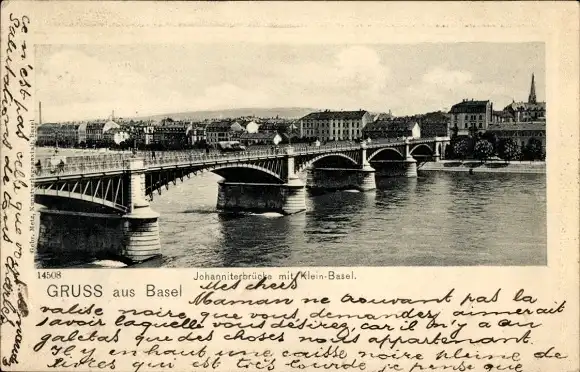 14508
Johanniterbrücke mit Klein-Basel.
GRUSS aus Basel
Mes chers
Maman ne trouvant pas la
valise noire, que vous demandez, aimerait
savoir laquelle vous désirez, car il n'y a au
galetas que des choses nous appartenant.
Il y en haut une caisse noire pleine de
livres qui est très lourde je pense que
ce n'est pas celle que
Salutations de tous
Gebr. Metz,